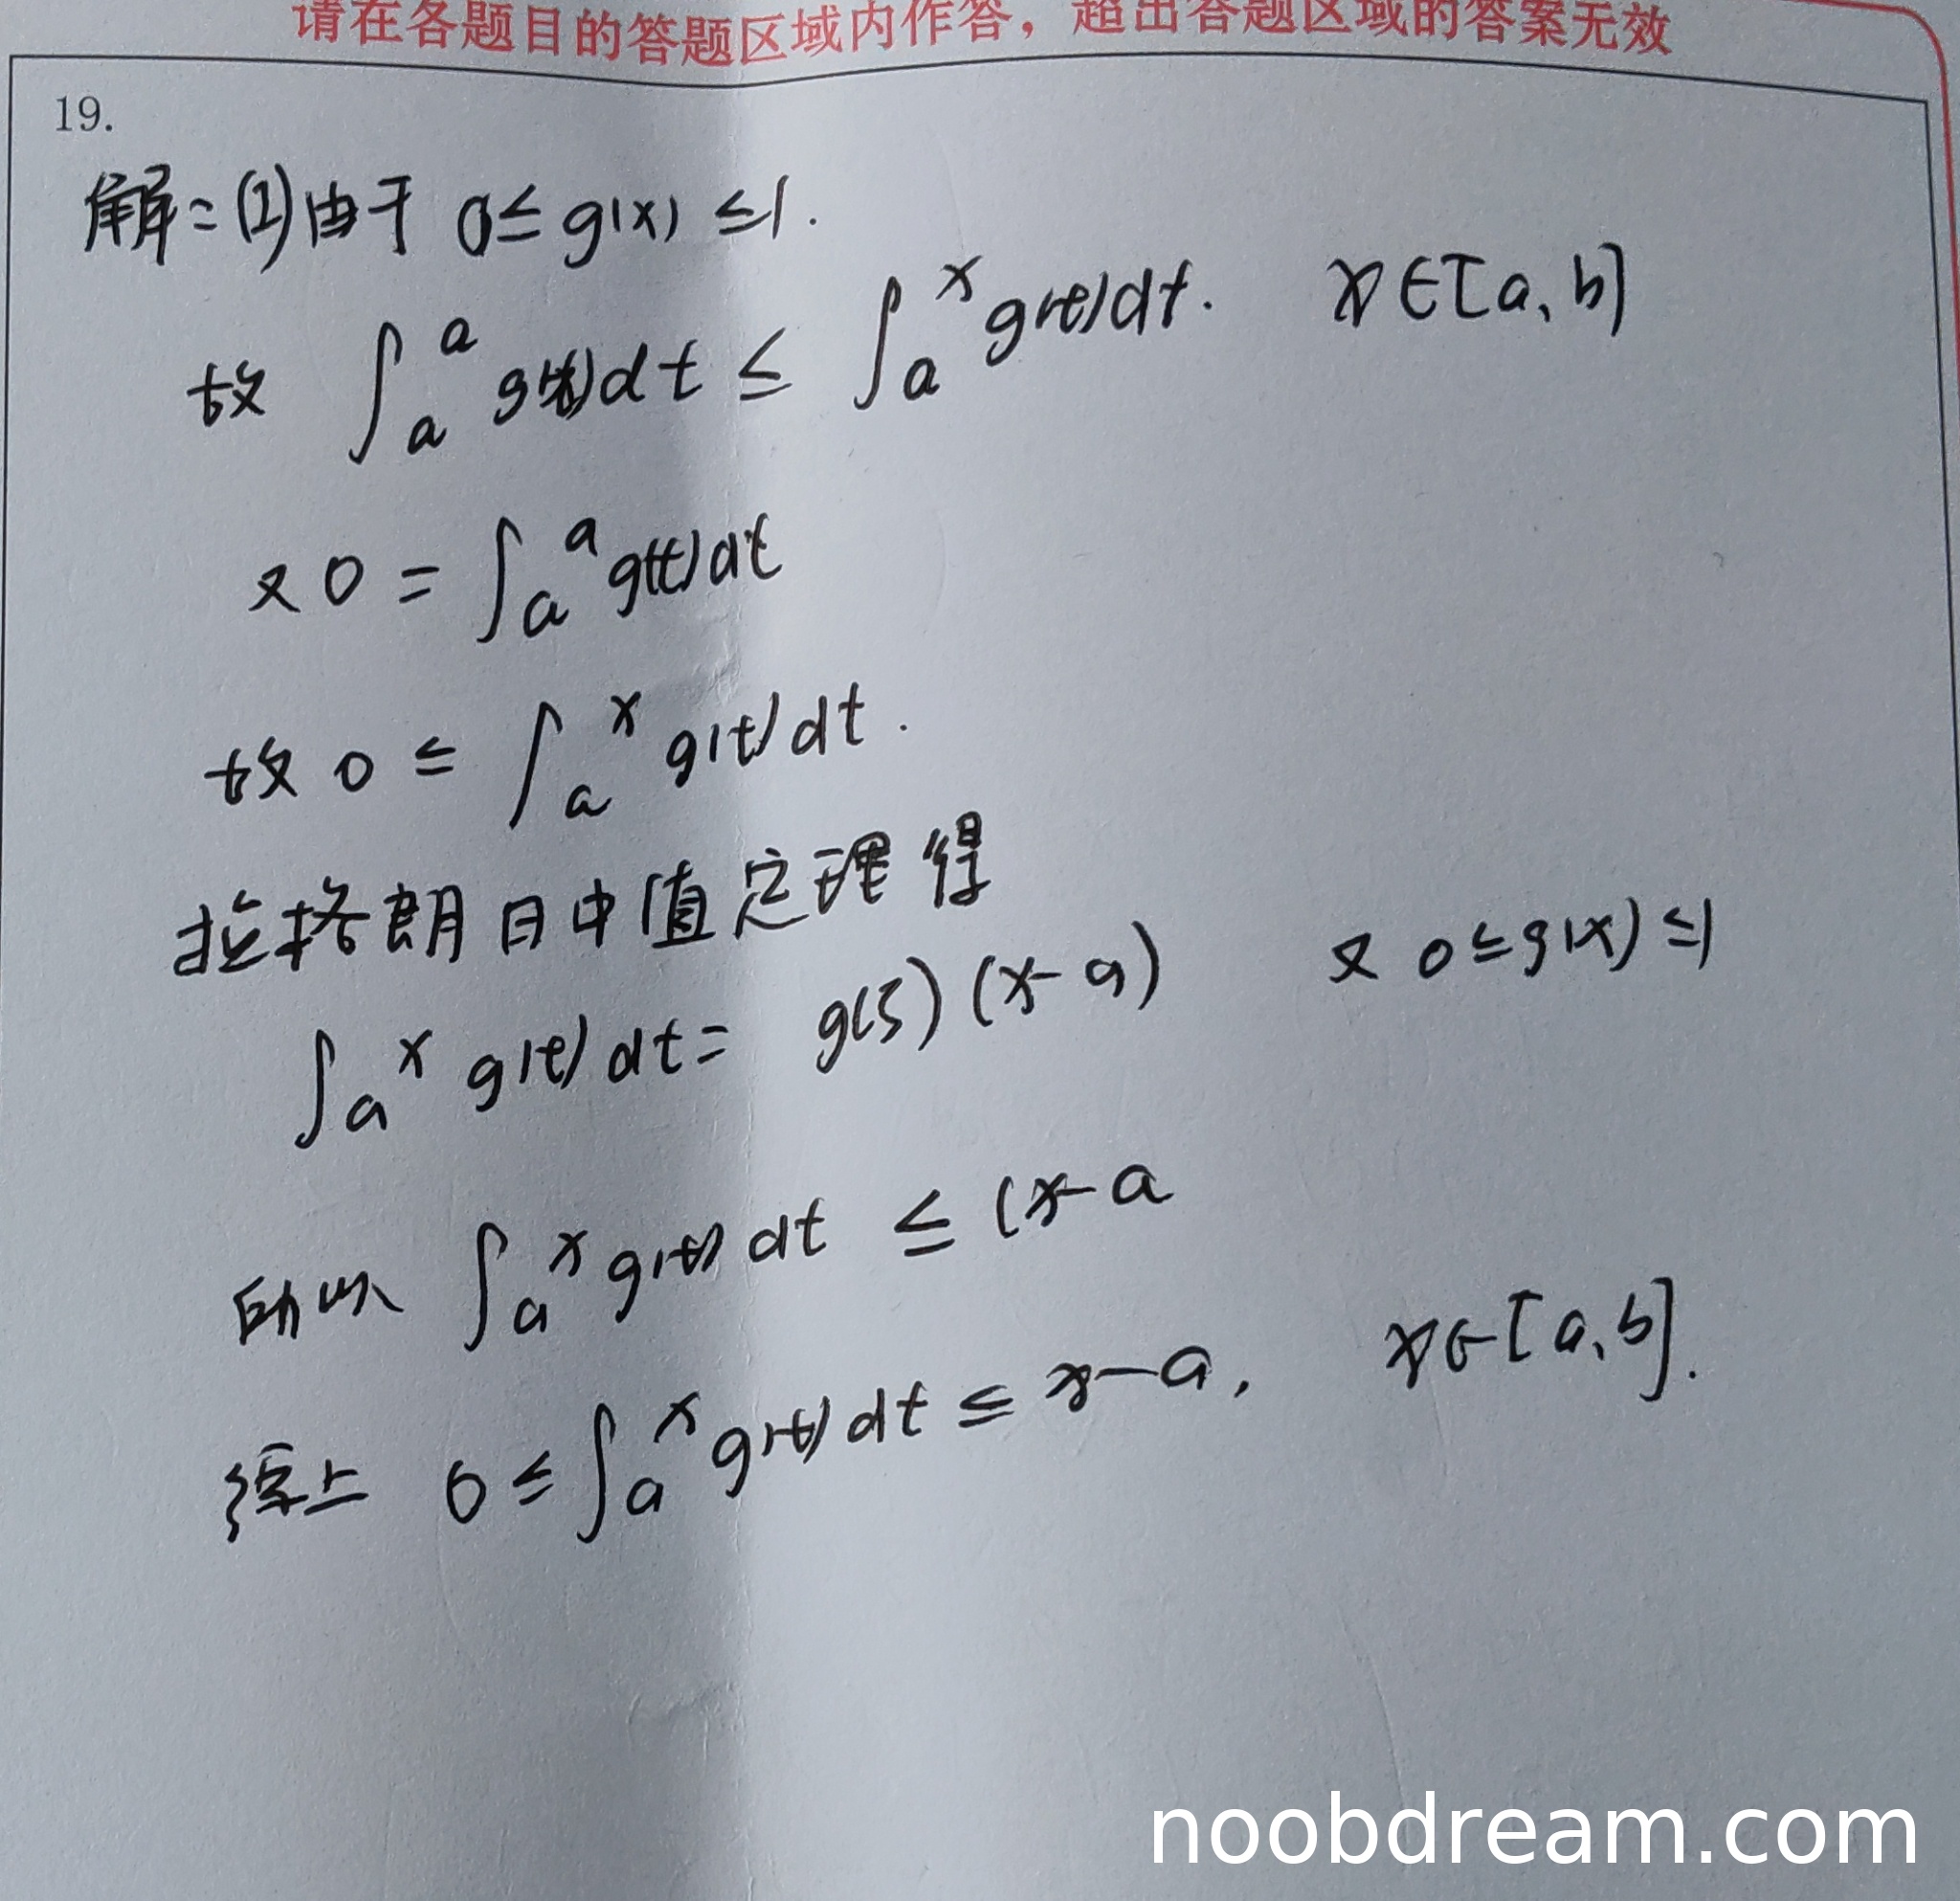 请在各题目的答题区域内作答，超出答题区域的答案无效
19.
解：(1)由于 0≤g(x)≤1.
故 ∫_a^a g(t)dt ≤ ∫_a^x g(t)dt. x∈[a,b]
又 0 = ∫_a^a g(t)dt
故 0 ≤ ∫_a^x g(t)dt.
拉格朗日中值定理得
∫_a^x g(t)dt = g(ξ)(x-a) 又 0≤g(x)≤1
所以 ∫_a^x g(t)dt ≤ (x-a
综上 0 ≤ ∫_a^x g(t)dt ≤ x-a, x∈[a,b].
noobdream.com